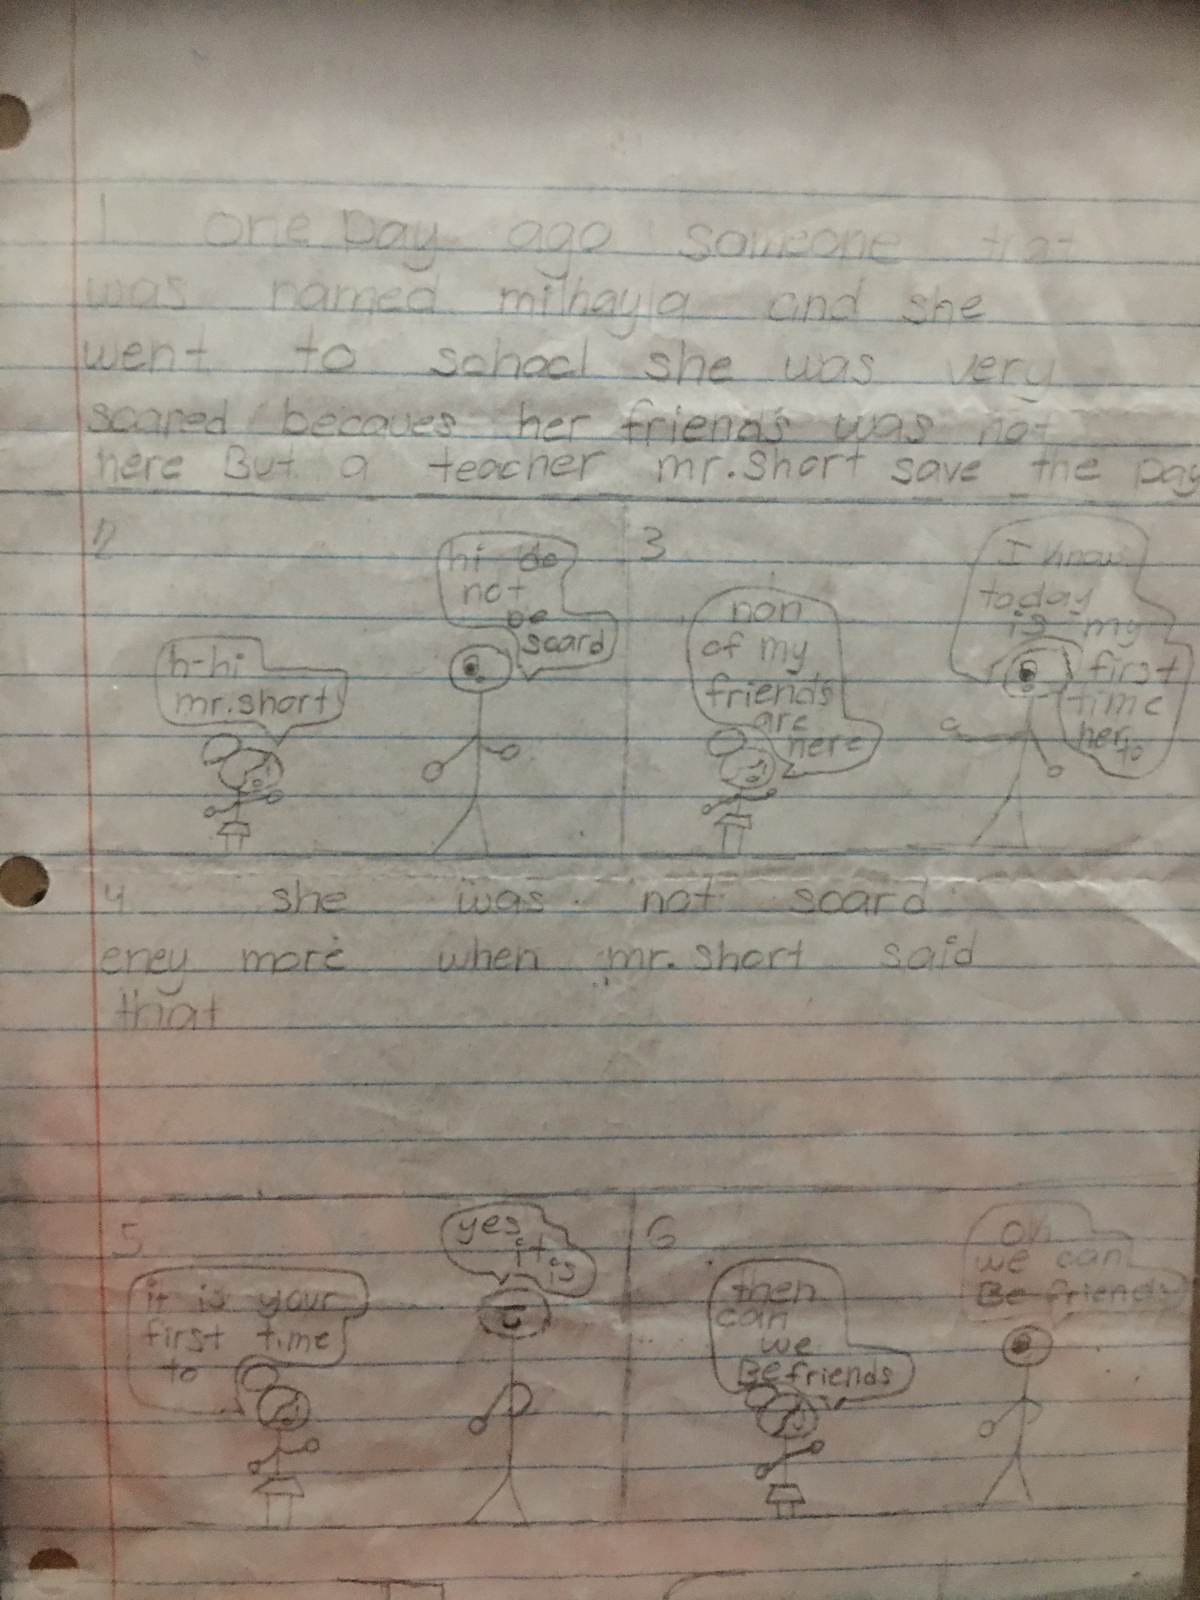 1 one Day ago someone that
was named mihayla and she
went to school she was very
scared becaues her friends was not
here But a teacher mr. short save the Day
2
h-hi
mr. short
hi do
not
be
scard
3
non
of my
friends
are
here
I know
today
is my
first
time
her to
4 she was not scard
eney more when mr. short said
that
5
it is your
first time
to
yes
it
is
6
then
can
we
Be friends
oh
we can
Be friends